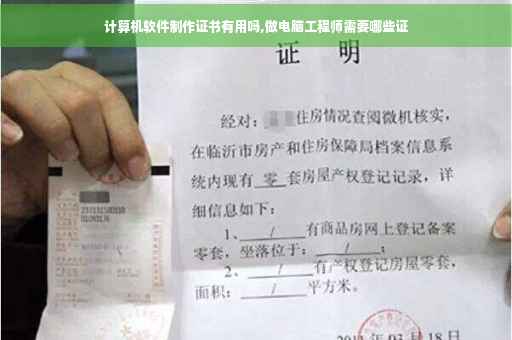 计算机软件制作证书有用吗,做电脑工程师需要哪些证
证 明
经对：住房情况查阅微机核实，
在临沂市房产和住房保障局档案信息系
统内现有 零 套房屋产权登记记录，详
细信息如下：
1、 / 有商品房网上登记备案
零套，坐落位于： / ；
2、 / 有产权登记房屋零套，
面积： / 平方米。
03月18日